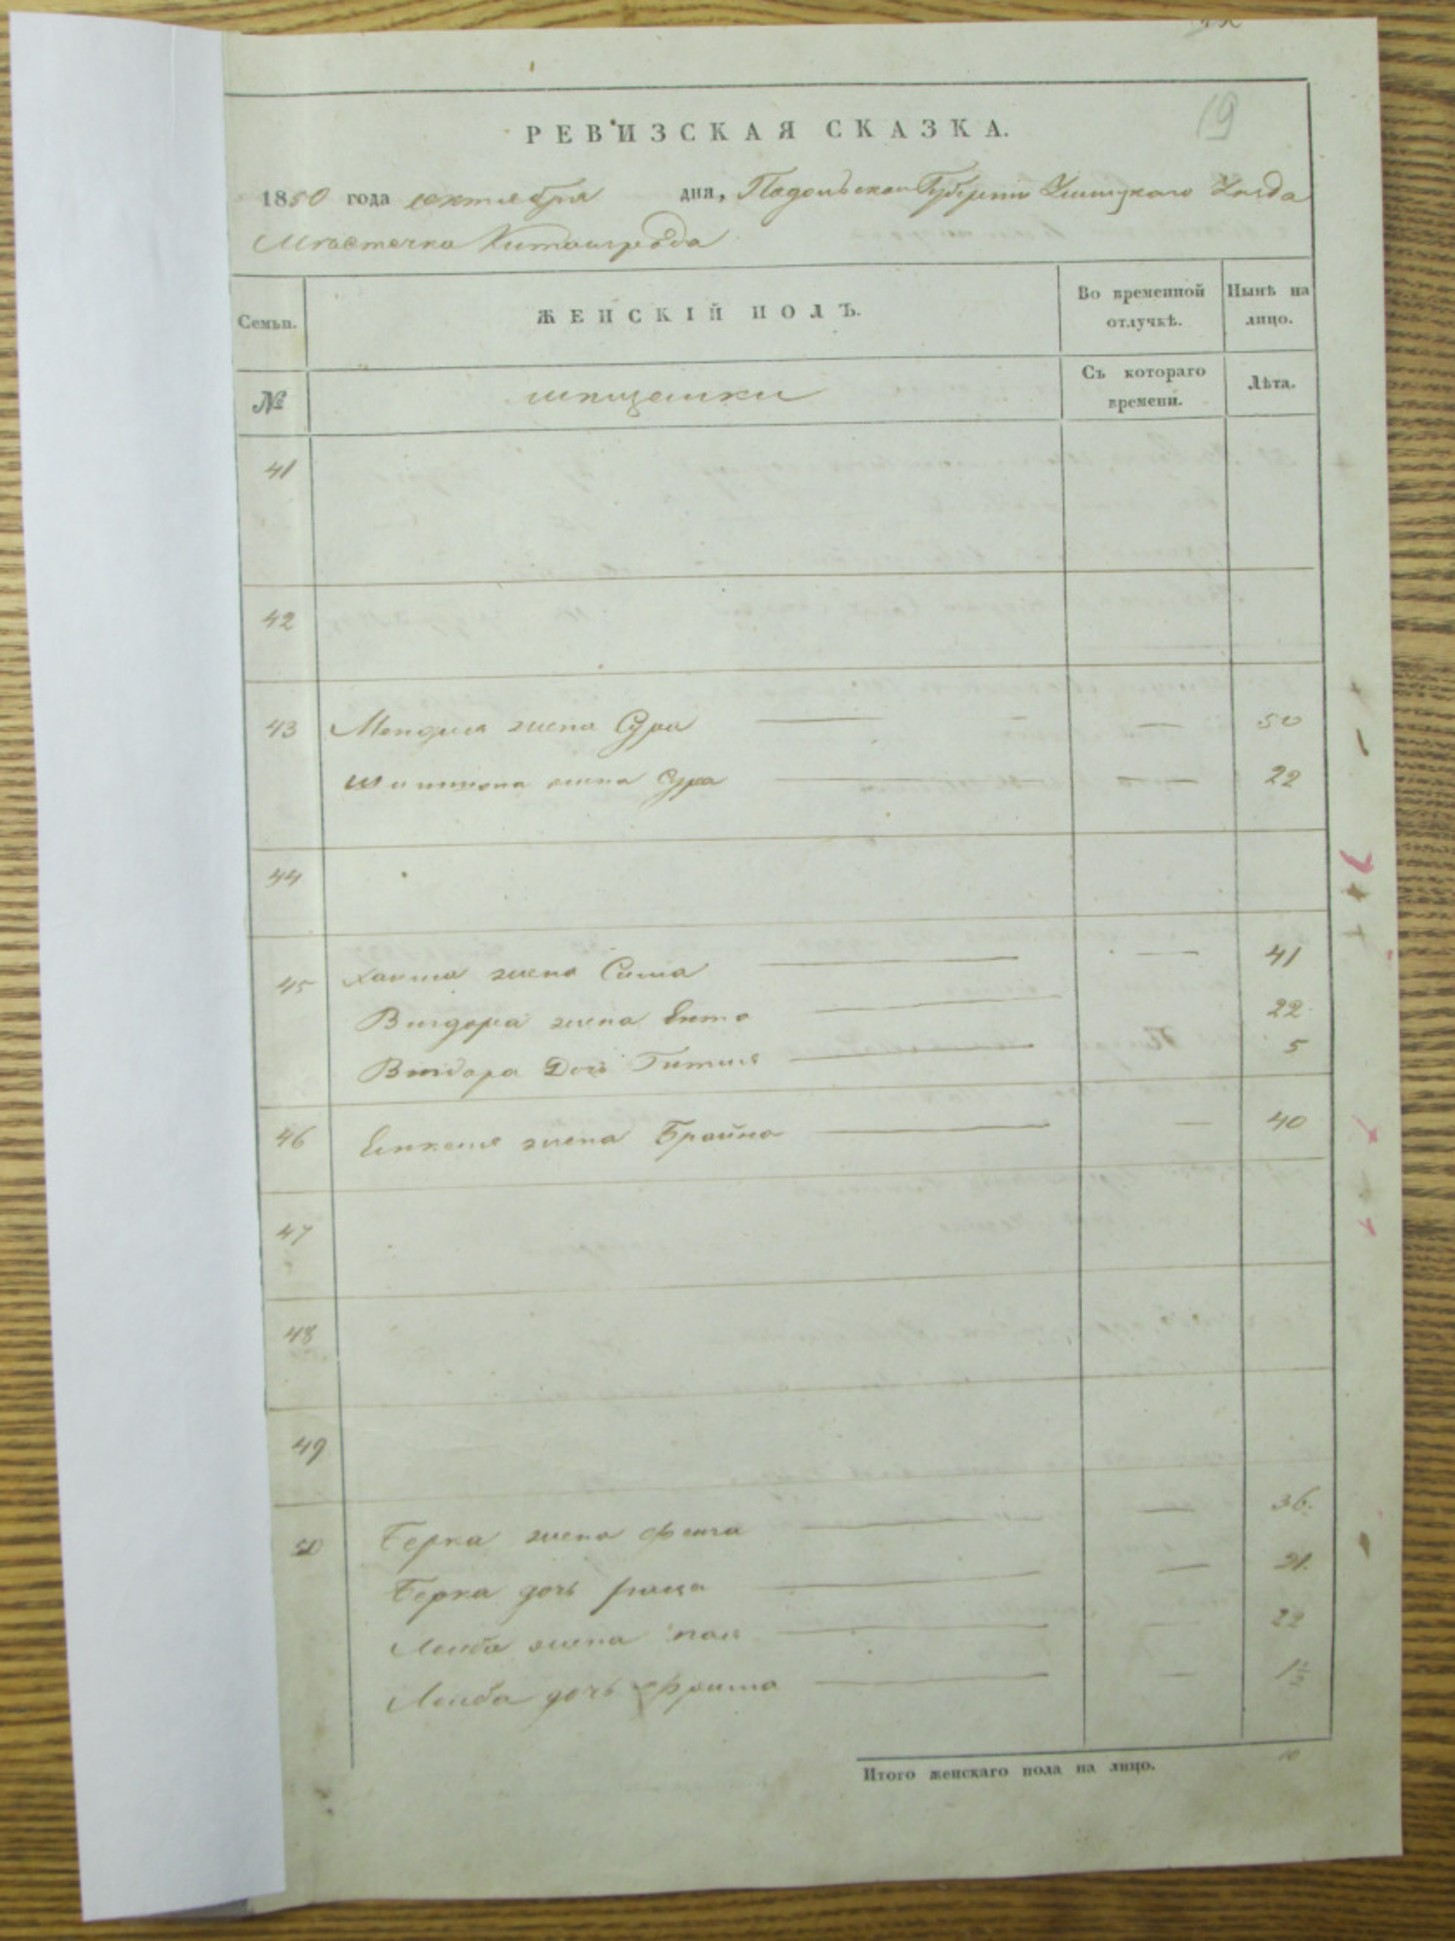 19
РЕВИЗСКАЯ СКАЗКА.
1850 года октября дня, Подольской Губернии Ушицкаго Уезда
Местечка Китайгрода
Семьи. ЖЕНСКІЙ ПОЛЪ. Во временной отлучкѣ. Нынѣ на лицо.
№ мещанки Съ котораго времени. Лѣта.
41
42
43 Менделя жена Сура — — 50
жена Сура — — 22
44
45 жена Сима — — 41
Вигдора жена Ента — 22
Вигдора Дочь Гитля — 5
46 жена Брайна — — 40
47
48
49
50 Берка жена Фейга — — 36
Берка дочь — — 21
Лейба жена — — 22
Лейба дочь — — 1½
Итого женскаго пола на лицо. 10